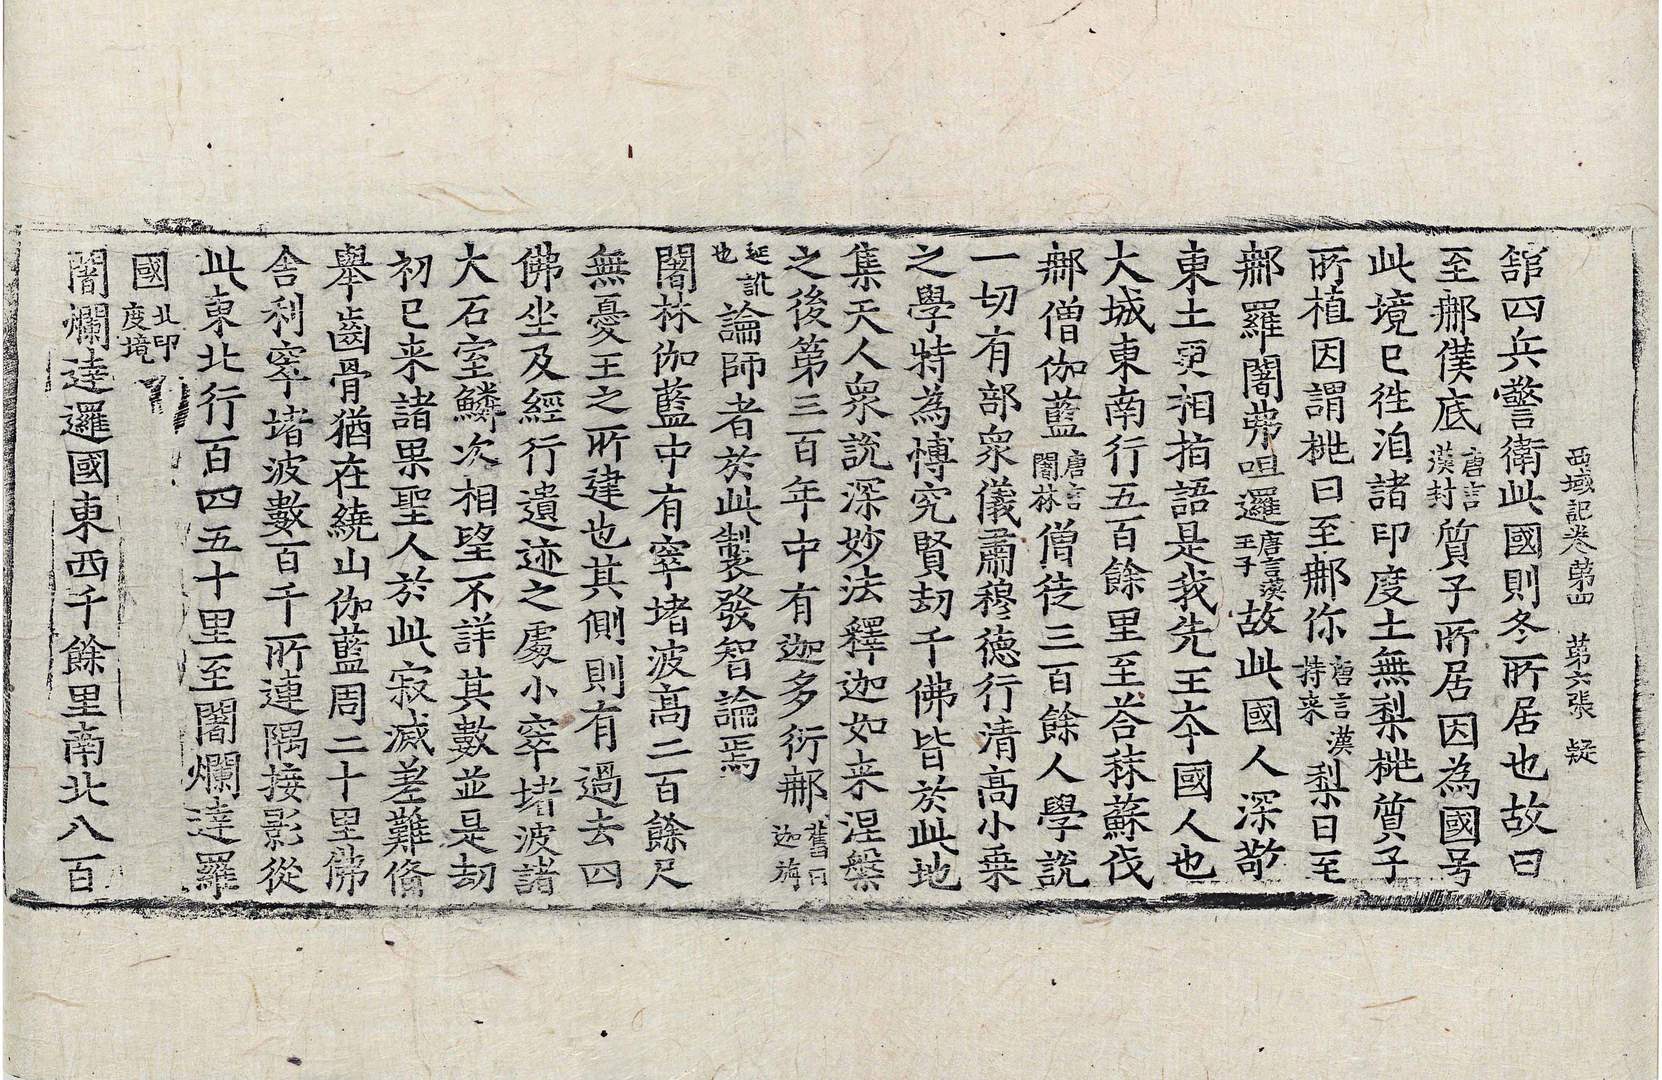 西域記卷第四 第六張 疑
舘四兵警衛此國則冬所居也故曰
至郍僕底唐言漢封質子所居因為國号
此境已往洎諸印度土無梨桃質子
所植因謂桃曰至郍你唐言漢持来梨曰至
郍羅闍弗呾邏唐言漢王子故此國人深敬
東土更相指語是我先王夲國人也
大城東南行五百餘里至荅秣蘇伐
郍僧伽藍唐言闇林僧徒三百餘人學說
一切有部衆儀肅穆德行清高小乗
之學特為博究賢劫千佛皆於此地
集天人衆說深妙法釋迦如来涅槃
之後第三百年中有迦多衍郍舊曰迦旃
延訛也論師者於此製發智論焉
闇林伽藍中有窣堵波高二百餘尺
無憂王之所建也其側則有過去四
佛坐及經行遺迹之處小窣堵波諸
大石室鱗次相望不詳其數並是劫
初已来諸果聖人於此寂滅差難俻
舉齒骨猶在繞山伽藍周二十里佛
舎利窣堵波數百千所連隅接影從
此東北行百四五十里至闍爛達羅
國北印度境
闍爛達邏國東西千餘里南北八百